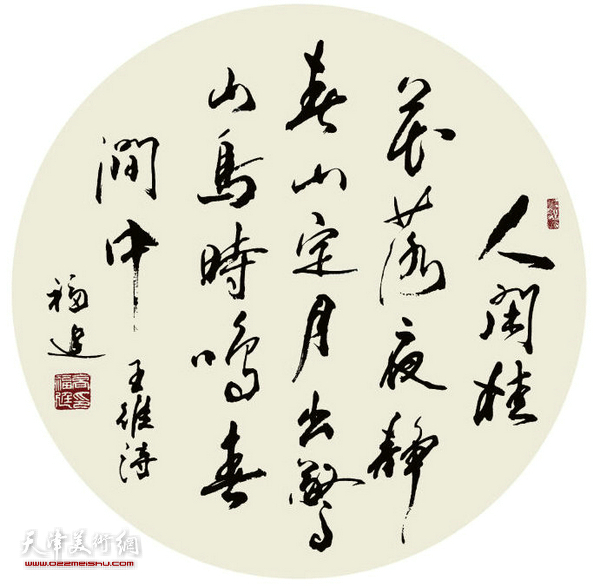 人閑桂
花落夜靜
春山空月出驚
山鳥時鳴春
澗中
王維詩
福
天津美術網
www.022meishu.com